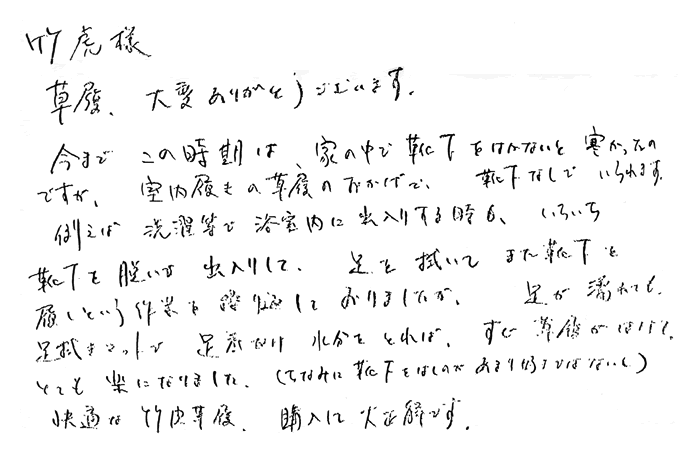 竹虎様
草履、大変ありがとうございます。
今まで この時期は、家の中で靴下をはかないと寒かったの
ですが、室内履きの草履のおかげで、靴下なしでいられます。
例えば 洗濯等で 浴室内に出入りする時も、いちいち
靴下を脱いで出入りして、足を拭いてまた靴下を
履くという作業を繰り返しておりましたが、足が濡れても、
足拭きマットで 足裏だけ水分をとれば、すぐ草履がはけて、
とても楽になりました。(ちなみに靴下をはくのがあまり好きではないし)
快適な竹皮草履、購入して大正解です。